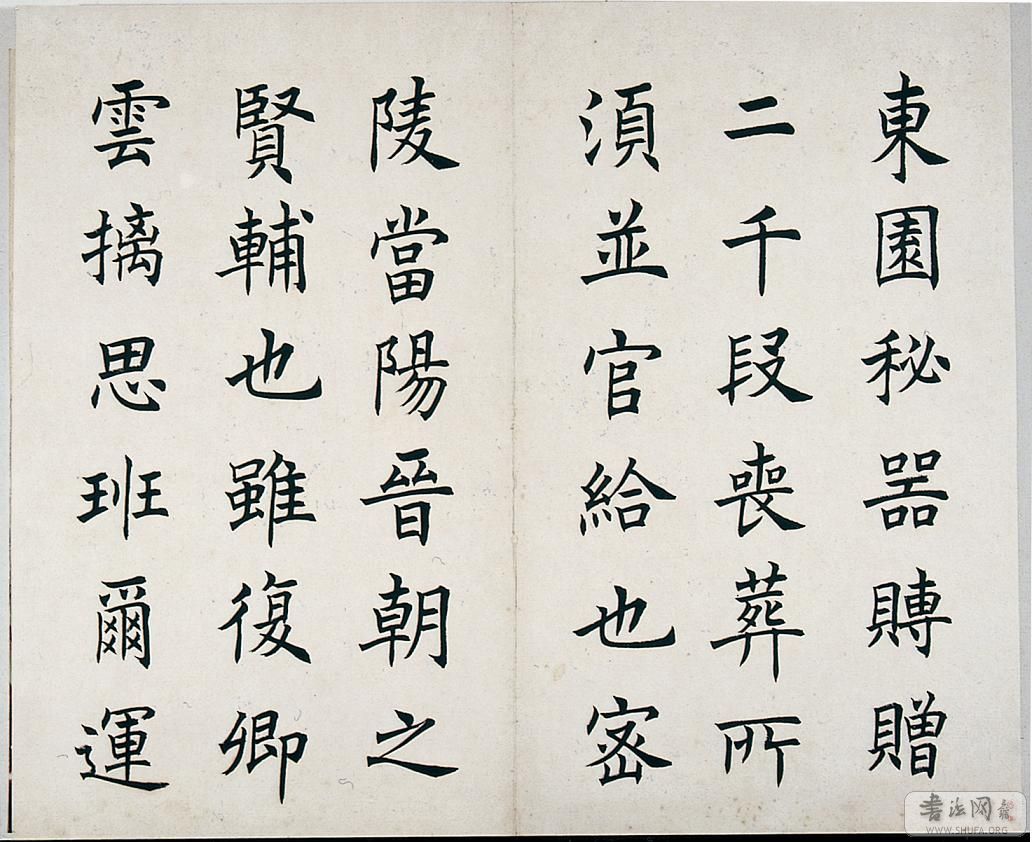 東園秘器賻贈
二千段喪葬所
須並官給也密
陵當陽晉朝之
賢輔也雖復卿
雲摛思班爾運
書法网
WWW.SHUFA.ORG